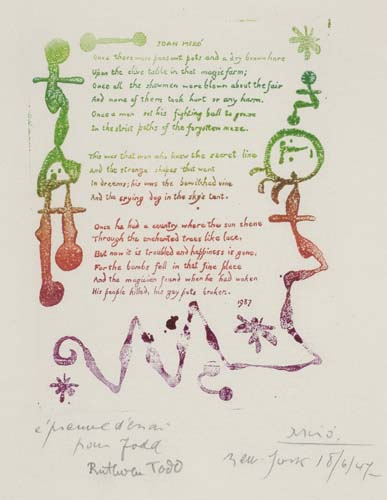 JOAN MIRÓ
Once there were peasant pots and a dry brown hare
Upon the olive table in that magic farm;
Once all the showmen were blown about the fair
And none of them took hurt or any harm.
Once a man set his fighting bull to graze
In the strict paths of the forgotten maze.
This was that man who knew the secret line
And the strange shapes that went
In dreams; his was the bewitched vine
And the crying dog in the sky's tent.
Once he had a country where the sun shone
Through the enchanted trees like lace,
But now it is troubled and happiness is gone,
For the bombs fell in that fine place
And the magician found when he had woken
His people killed, his gay pots broken.
1937
épreuve d'essai
pour Todd
Ruthven Todd
Miró.
New-York 18/6/47